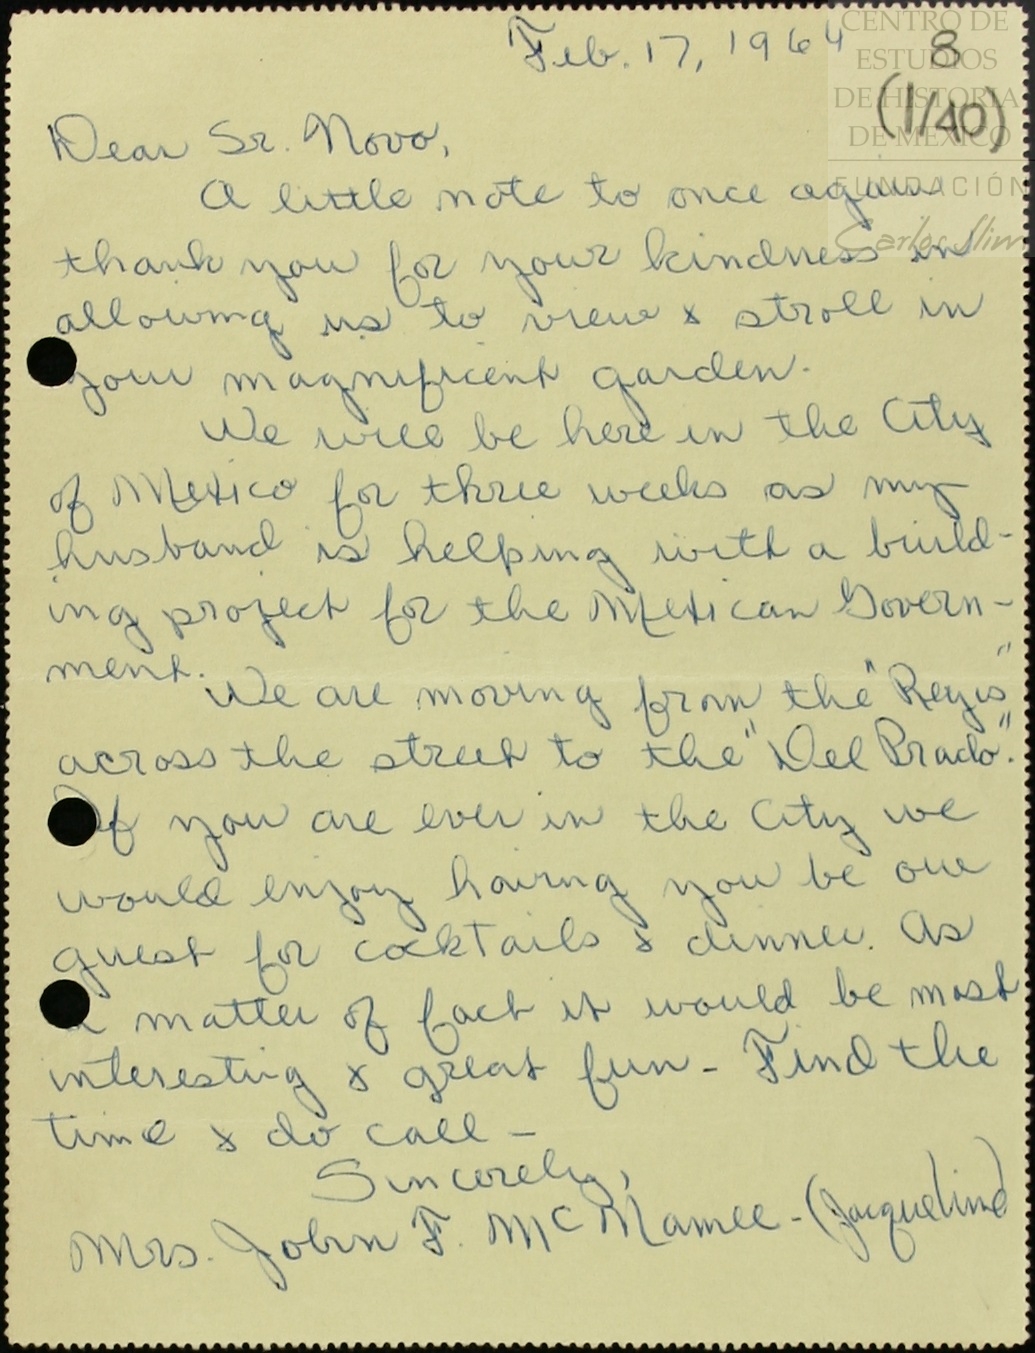 CENTRO DE
ESTUDIOS
DE HISTORIA
DE MEXICO
FUNDACIÓN
Carlos Slim
8
(1/40)
Feb. 17, 1964
Dear Sr. Novo,
A little note to once again
thank you for your kindness in
allowing us to view & stroll in
your magnificent garden.
We will be here in the City
of Mexico for three weeks as my
husband is helping with a build-
ing project for the Mexican Govern-
ment.
We are moving from the "Regis"
across the street to the "Del Prado".
If you are ever in the City we
would enjoy having you be our
guest for cocktails & dinner. As
a matter of fact it would be most
interesting & great fun - Find the
time & do call -
Sincerely,
Mrs. John F. McNamee - (Jacqueline)